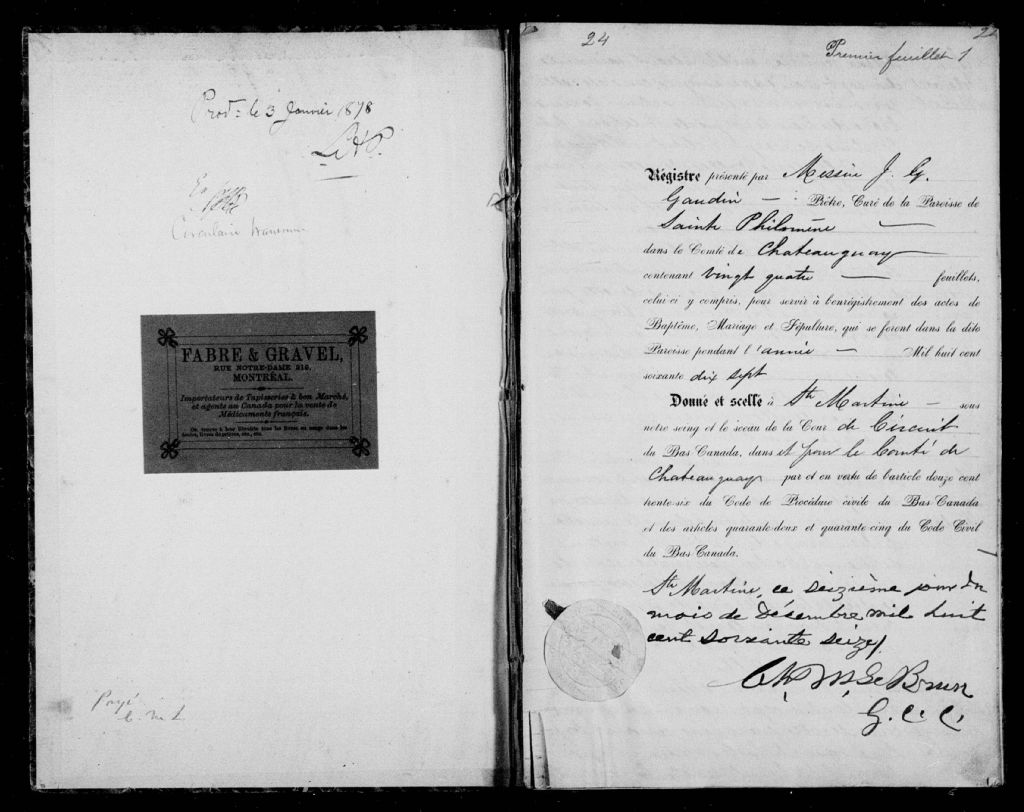 Prod. le 3 Janvier 1878
L.H.P.
Circulaire
FABRE & GRAVEL,
RUE NOTRE-DAME 219,
MONTRÉAL.
Importateurs de Tapisseries à bon Marché,
et agents au Canada pour la vente de
Médicaments français.
On trouve à leur librairie tous les livres en usage dans les
écoles, livres de prières, etc., etc.
Payé
24
Premier feuillet 1
Régistre présenté par Messire J. G.
Gaudin — Prêtre, Curé de la Paroisse de
Sainte Philomène —
dans le Comté de Chateauguay —
contenant vingt quatre — feuillets,
celui-ci y compris, pour servir à l'enrégistrement des actes de
Baptême, Mariage et Sépulture, qui se feront dans la dite
Paroisse pendant l'année — Mil huit cent
soixante dix sept
Donné et scellé à Ste Martine — sous
notre seing et le sceau de la Cour de Circuit
du Bas Canada, dans et pour le Comté de
Chateauguay par et en vertu de l'article douze cent
trente-six du Code de Procédure civile du Bas-Canada
et des articles quarante-deux et quarante-cinq du Code Civil
du Bas-Canada.
Ste Martine, ce seizième jour du
mois de Désembre mil huit
cent soixante seize/
Ch. M. LeBrun
G. C. C.